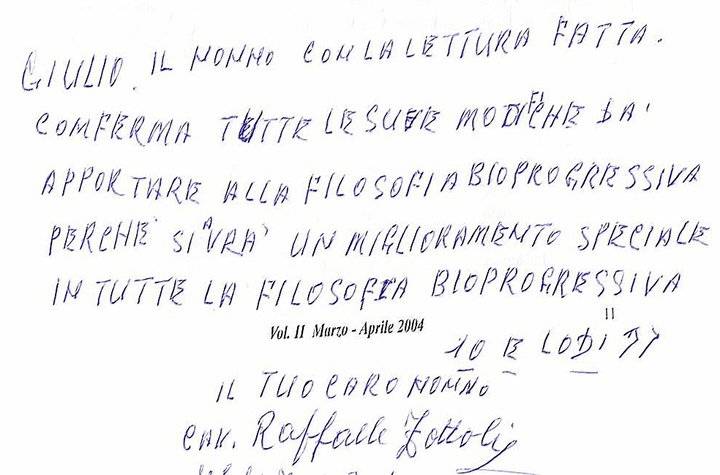 GIULIO. IL NONNO CON LA LETTURA FATTA.
CONFERMA TUTTE LE SUE MODIFICHE DA'
APPORTARE ALLA FILOSOFIA BIOPROGRESSIVA
PERCHE' SI AVRA' UN MIGLIORAMENTO SPECIALE
IN TUTTE LA FILOSOFIA BIOPROGRESSIVA
Vol. II Marzo - Aprile 2004
11
10 E LODI
IL TUO CARO NONNO
CAV. Raffaele Zottoli